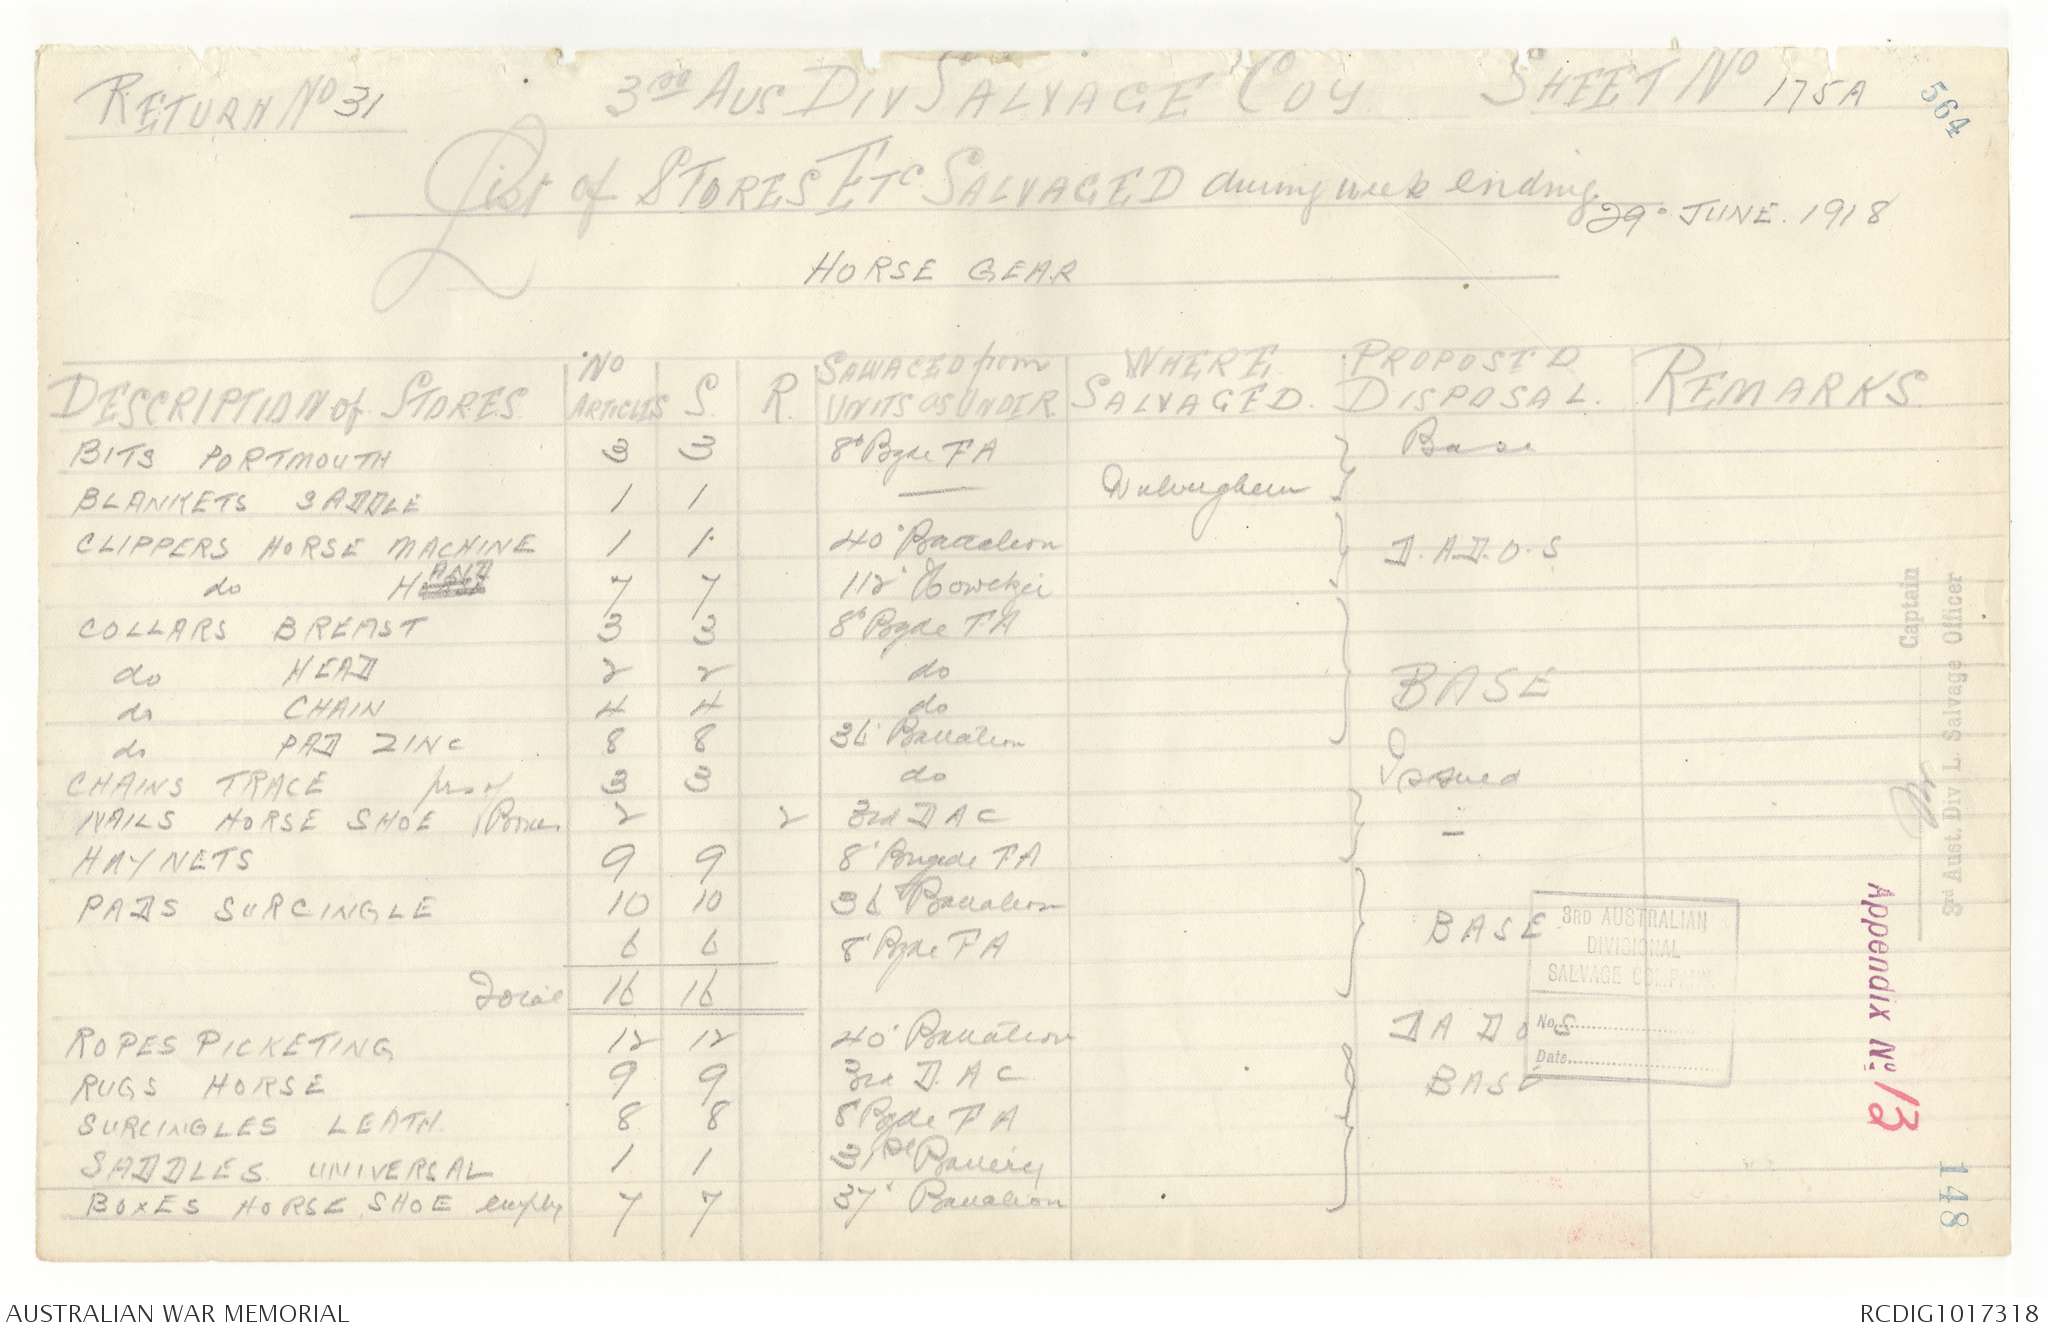 RETURN No 31 3RD AUS DIV SALVAGE COY SHEET No 175A
564
List of STORES ETC SALVAGED during week ending 29° JUNE. 1918
HORSE GEAR
DESCRIPTION of STORES No ARTICLES S. R. SALVAGED from UNITS as UNDER WHERE SALVAGED. PROPOSED DISPOSAL. REMARKS
BITS PORTMOUTH 3 3 8th Bgde FA Base
BLANKETS SADDLE 1 1 —
CLIPPERS HORSE MACHINE 1 1 40' Battalion D.A.D.O.S
do HAND 7 7 112' Howitzer
COLLARS BREAST 3 3 8th Bgde FA
do HEAD 2 2 do BASE
do CHAIN 4 4 do
do PAD ZINC 8 8 36' Battalion
CHAINS TRACE 3 3 do Issued
NAILS HORSE SHOE Boxes 2 2 3rd D A C —
HAY NETS 9 9 8' Brigade FA
PADS SURCINGLE 10 10 36 Battalion
6 6 8' Bgde FA BASE
Total 16 16
ROPES PICKETING 12 12 40' Battalion D A D O S
RUGS HORSE 9 9 3rd D. A C BASE
SURCINGLES LEATH. 8 8 8 Bgde F A
SADDLES UNIVERSAL 1 1 31st Battery
BOXES HORSE SHOE empty 7 7 37' Battalion
3RD AUSTRALIAN
DIVISIONAL
SALVAGE COMPANY.
No.
Date
Captain
3rd Aust. Div L. Salvage Officer
Appendix No. 13
148
AUSTRALIAN WAR MEMORIAL RCDIG1017318